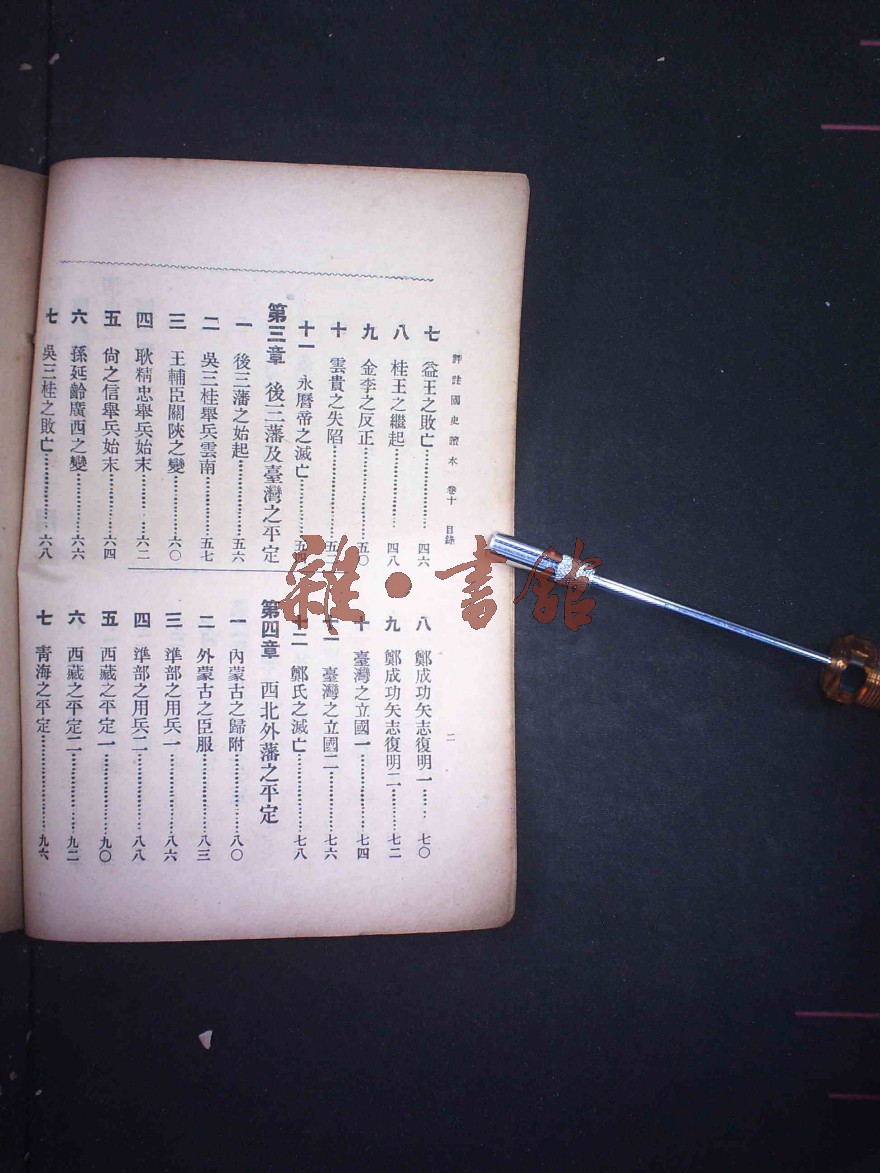 評註國史讀本 卷十 目錄 二
七 益王之敗亡…………四六
八 桂王之繼起…………四八
九 金李之反正…………五〇
十 雲貴之失陷…………五二
十一 永曆帝之滅亡…………五四
第三章 後三藩及臺灣之平定
一 後三藩之始起…………五六
二 吳三桂舉兵雲南…………五七
三 王輔臣關陝之變…………六〇
四 耿精忠舉兵始末…………六二
五 尙之信舉兵始末…………六四
六 孫延齡廣西之變…………六六
七 吳三桂之敗亡…………六八
八 鄭成功矢志復明一……七〇
九 鄭成功矢志復明二…………七二
十 臺灣之立國一…………七四
十一 臺灣之立國二…………七六
十二 鄭氏之滅亡…………七八
第四章 西北外藩之平定
一 內蒙古之歸附…………八〇
二 外蒙古之臣服…………八三
三 準部之用兵一…………八六
四 準部之用兵二…………八八
五 西藏之平定一…………九〇
六 西藏之平定二…………九二
七 靑海之平定…………九六
雜·書館